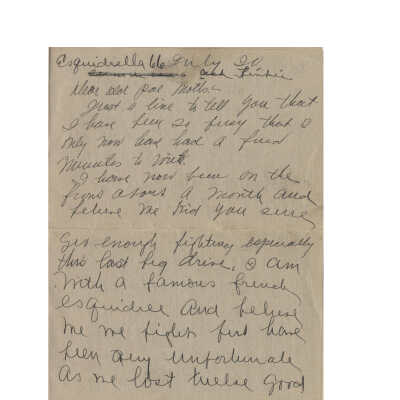 Esquidrilla 66 July 20
and Finbir
Dear old Pal Mother
Just a line to tell you that
I have been so busy that I
only now have had a few
minutes to write.
I have now been on the
front about a month and
believe me kid you sure
get enough fighting especially
this last big drive, I am
with a famous french
esquidrille and believe
me we fight but have
been very unfortunate
as we lost twelve good